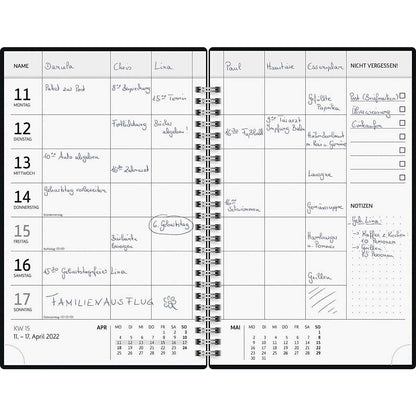 NAME Daniela Chris Lina
11
MONTAG
Paket zur Post
15:00 Termin
12
DIENSTAG
Fortbildung
Bücher
abgeben!
13
MITTWOCH
10:00 Auto abgeben
14
DONNERSTAG
Geburtstag vorbereiten
15
FREITAG
6. Geburtstag
16
SAMSTAG
15:30 Geburtstagsfeier Lina
17
SONNTAG
FAMILIENAUSFLUG
KW 15
11. – 17. April 2022
APR
MO DI MI DO FR SA SO
1 2 3
4 5 6 7 8 9 10
11 12 13 14 15 16 17
18 19 20 21 22 23 24
25 26 27 28 29 30
Paul Haustiere Essensplan NICHT VERGESSEN!
Gefüllte
Paprika
Post (Briefmarken)
Einkaufen
9:00 Tierarzt
Impfung Bello
Lasagne
16:00
Schwimmen
Gemüsesuppe
NOTIZEN
Geb. Lina:
→ Kaffee & Kuchen
10 Personen
→ Grillen
15 Personen
Hamburger
+ Pommes
Grillen
MAI
MO DI MI DO FR SA SO
1
2 3 4 5 6 7 8
9 10 11 12 13 14 15
16 17 18 19 20 21 22
23 24 25 26 27 28 29